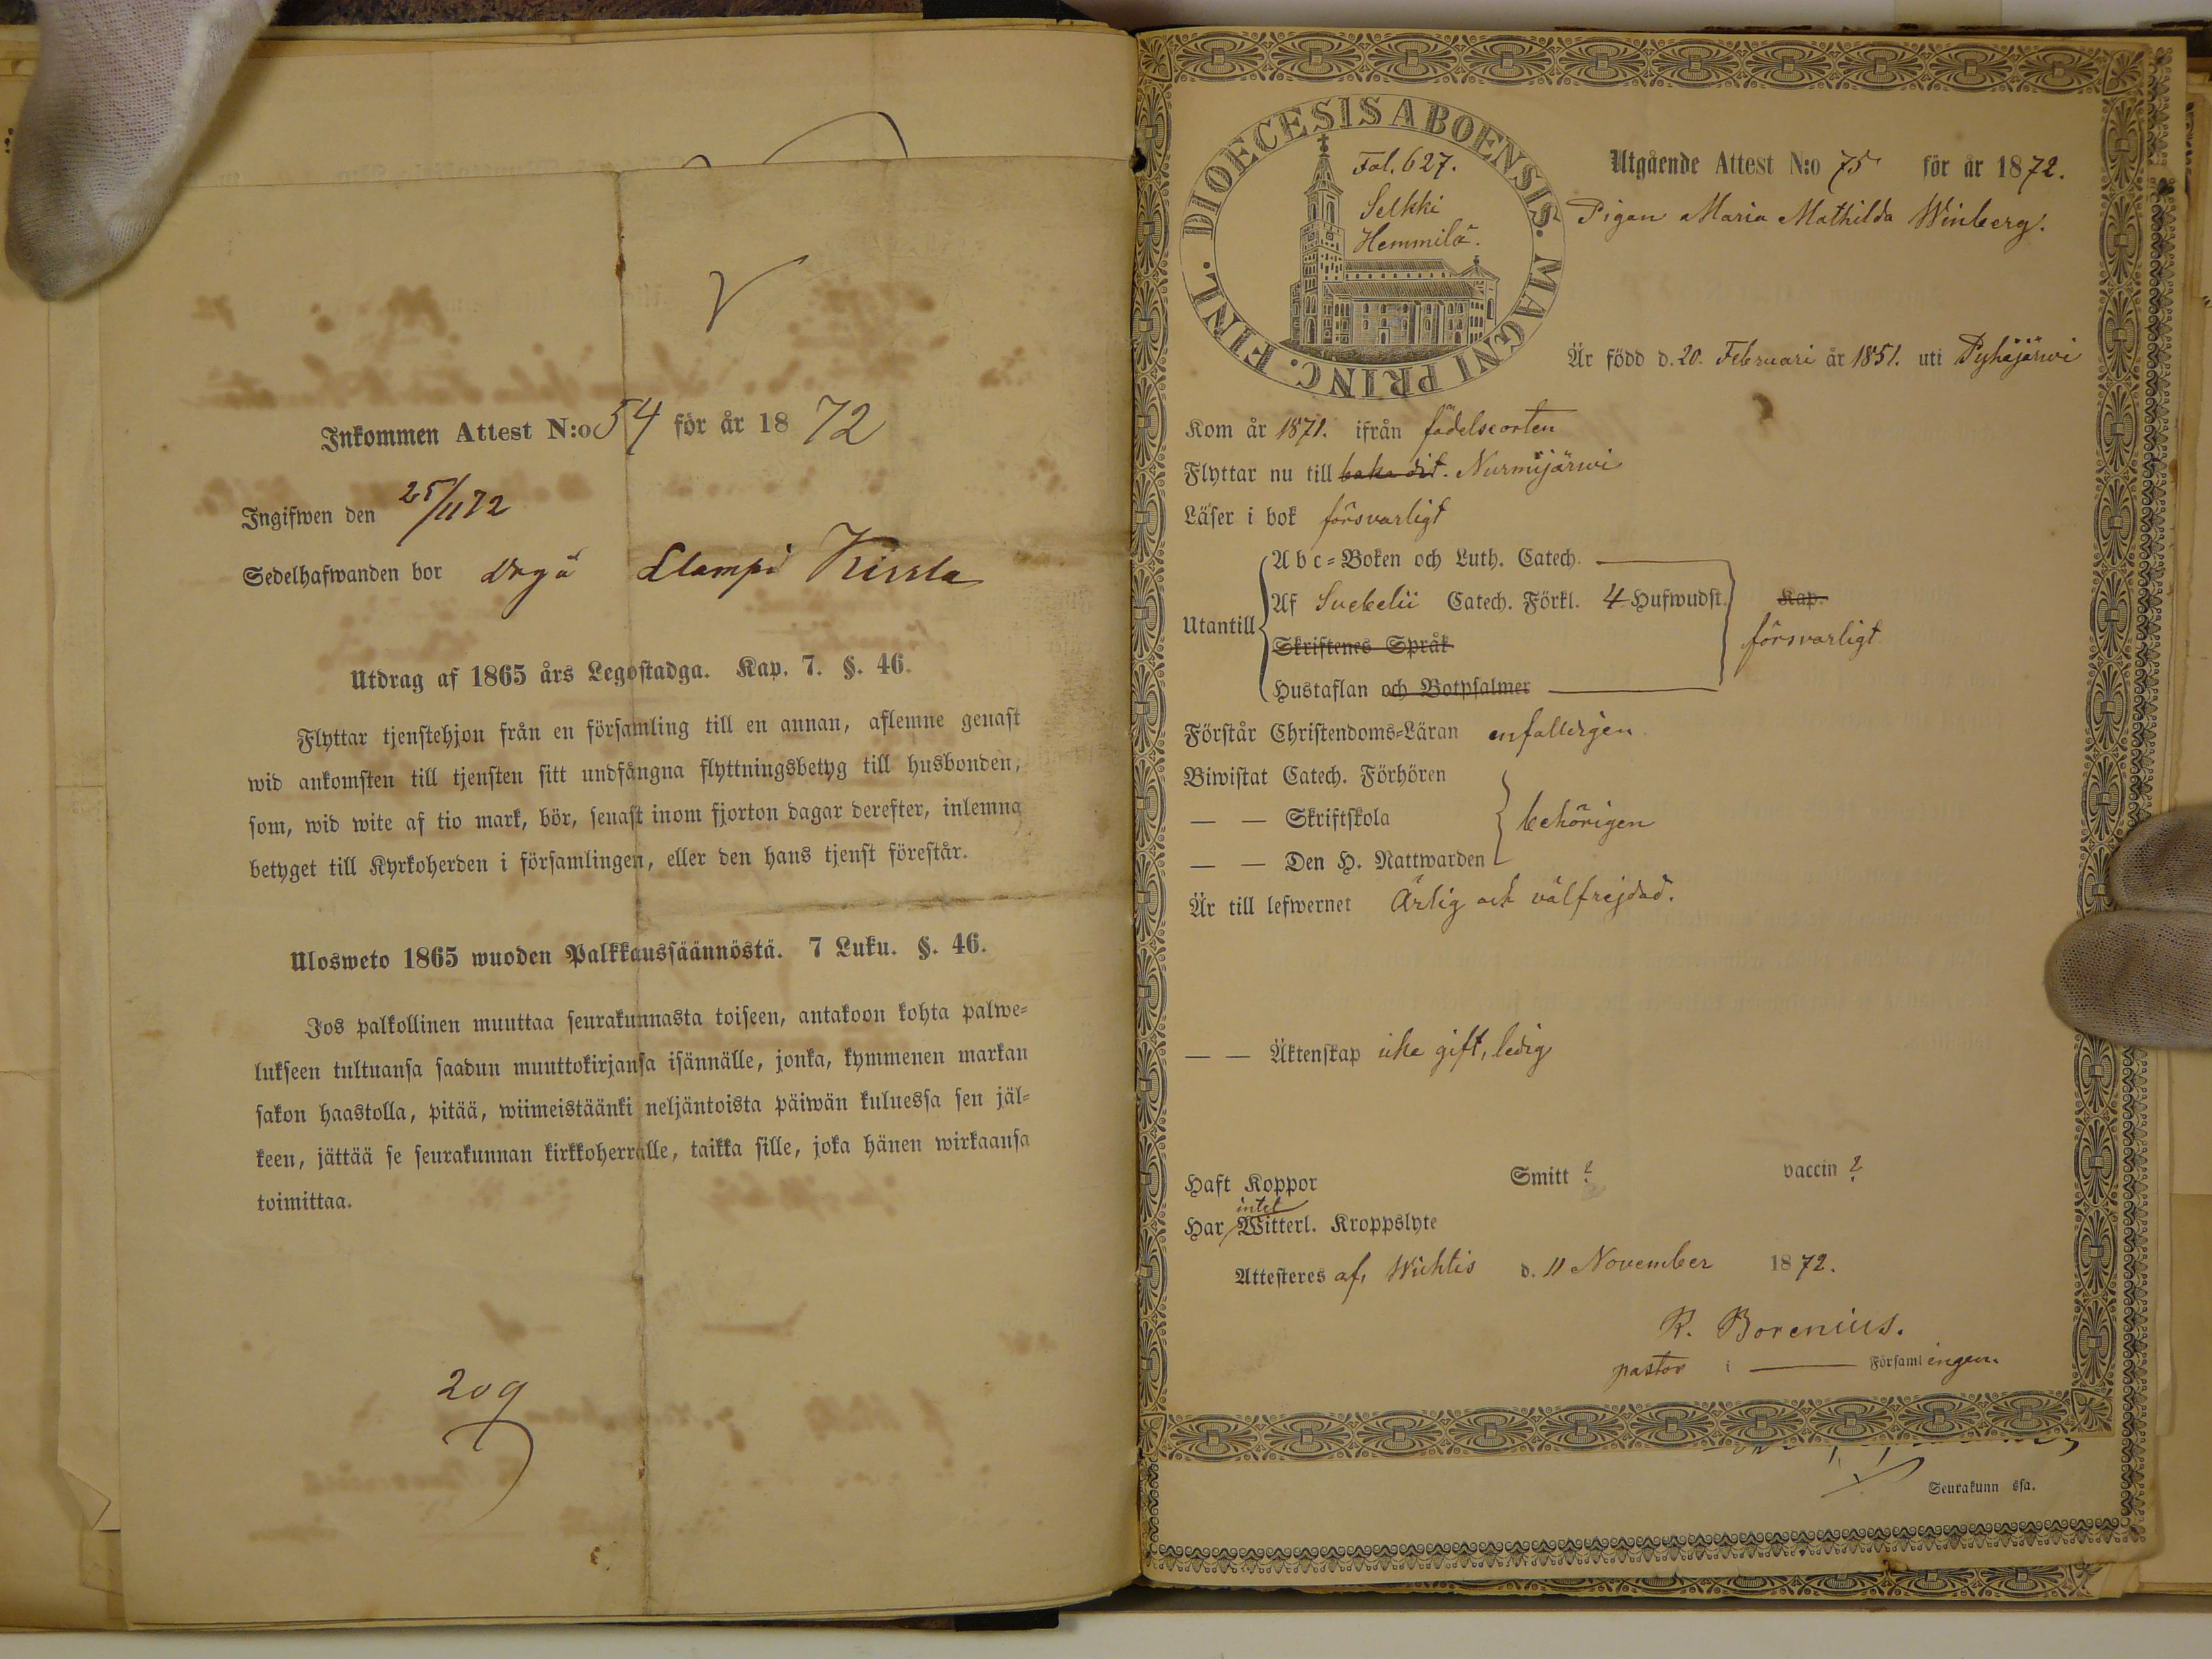 Inkommen Attest N:o 54 för år 1872
Ingifwen den 25/11 72
Sedelhafwanden bor
Utdrag af 1865 års Legostadga. Kap. 7. §. 46.
Flyttar tjenstehjon från en församling till en annan, aflemne genast
wid ankomsten till tjensten sitt undfångna flyttningsbetyg till husbonden,
som, wid wite af tio mark, bör, senast inom fjorton dagar derefter, inlemna
betyget till Kyrkoherden i församlingen, eller den hans tjenst förestår.
Ulosweto 1865 wuoden Palkkaussäännöstä. 7 Luku. §. 46.
Jos palkollinen muuttaa seurakunnasta toiseen, antakoon kohta palwe=
lukseen tultuansa saadun muuttokirjansa isännälle, jonka, kymmenen markan
sakon haastolla, pitää, wiimeistäänki neljäntoista päiwän kuluessa sen jäl=
keen, jättää se seurakunnan kirkkoherralle, taikka sille, joka hänen wirkaansa
toimittaa.
209
DIOECESIS ABOENSIS. MAGNI PRINC. FINL.
Fol. 627.
Selkki
Hemmilä.
Utgående Attest N:o 75 för år 1872.
Pigan Maria Mathilda Winberg.
Är född d. 20. Februari år 1851. uti Pyhäjärwi
Kom år 1871. ifrån födelseorten
Flyttar nu till baka dit. Nurmijärwi
Läser i bok försvarligt
Utantill
Abc=Boken och Luth. Catech.
Af Svebelii Catech. Förkl. 4 Hufwudst. Kap.
Skriftenes Språk
försvarligt
Hustaflan och Botpsalmer
Förstår Christendoms=Läran enfalldigen
Biwistat Catech. Förhören
— — Skriftskola behörigen
— — Den H. Nattwarden
Är till lefwernet Ärlig och välfrejdad.
— — Äktenskap icke gift, ledig
Haft Koppor Smitt ? vaccin ?
intet
Har Witterl. Kroppslyte
Attesteres af, Wichtis d. 11 November 1872.
R. Borenius.
pastor i — Församlingen.
Seurakunn ssa.